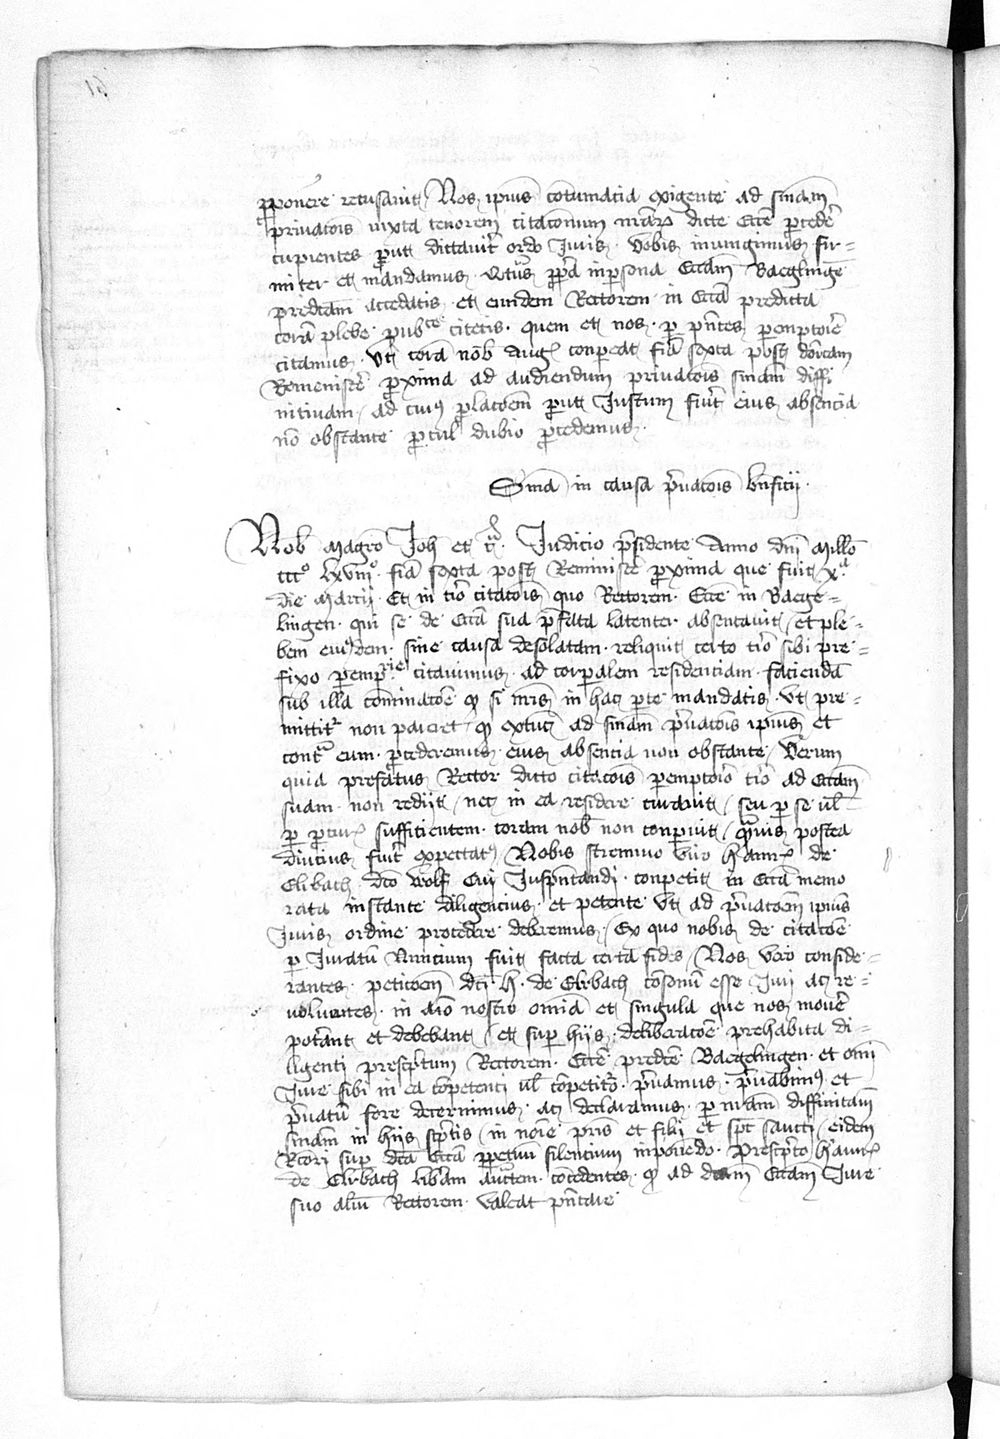 pponere recusavit Nos ipius cotumacia exigente ad sniam
privacois iuxta tenorem citaconum nrarum dicte Eccie pcede
cupientes put dictavit ordo Iuris. Vobis iniungimus fir=
miter et mandamus. Qtus ppa in persona Eccam Baeglinge
predcam accedatis. et eundem Rectorem in Ecca predicta
cora plebe pubce citetis. quem et nos. p pntes pemptorie
citamus. Vt cora nob Aug conpeat fia sexta post dnicam
Reminisce pxima ad audiendum privacois sniam diffi
nitivam / ad cuius placoem put Iustum fuit eius absencia
no obstante pcul dubio pcedemus.
Snia in causa pvacois bnficii.
Nob Magro Joh et c. Iudicio psidente Anno dni Millo
ccco lxviiio. fia sexta post Reminisce pxima que fuit xa
die Marcii. Et in tio citacois quo Rectorem. Eccie in Baege=
lingen. qui se de Ecca sua pfata latenter absentavit / et ple=
bem eiusdem. sine causa desolatam. reliquit certo tio sibi pre=
fixo pemprie citavimus. ad corpalem residenciam faciendam
sub illa cominacoe q si nris in hac pte mandatis. Vt pre=
mittitr non paret / q extunc ad sniam pvacois ipius et
contra eum. pcederemus. eius absencia non obstante / Verum
quia prefatus Rector dicto citacois pemptorio tio ad Eccam
suam. non rediit / nec in ea residere curavit / seu p se vl
p pcur sufficientem. coram nob non conpuit / qmvis postea
diucius fuit expectatus / Nobis strennuo viro H. de
Elrbach dco Wolf Cui Iuspntandi. conpetit in Ecca memo
rata instante diligencius. et petente Vt ad pvacoem ipius
Iuris ordine procedere deberemus / Ex quo nobis de citacoe
p Iuratu Nuncium fuit facta certa fides / Nos vero conside=
rantes. peticoem dci H. de Elrbach cosonu esse Iuri ac re=
volventes. in aio nostro omia et singula que nos move
poterant et debebant / et sup hiis. deliberacoe prehabita di=
ligenti prescptum Rectorem. Eccie predce Baegelingen. et omi
Iure sibi in ea copetenti vl copetituro. pvamus. pvabimus et
pvatu fore decernimus. ac declaramus. p nram diffinitam
sniam in hiis scptis / in noie pris et filii et spc sancti / eidem
Rcori sup dca Ecca ppetuu silencium inponedo. Prescpto H.
de Elrbach libam auctem. cocedentes. q ad dcam Eccam Iure
suo aliu Rectorem. valeat pntare